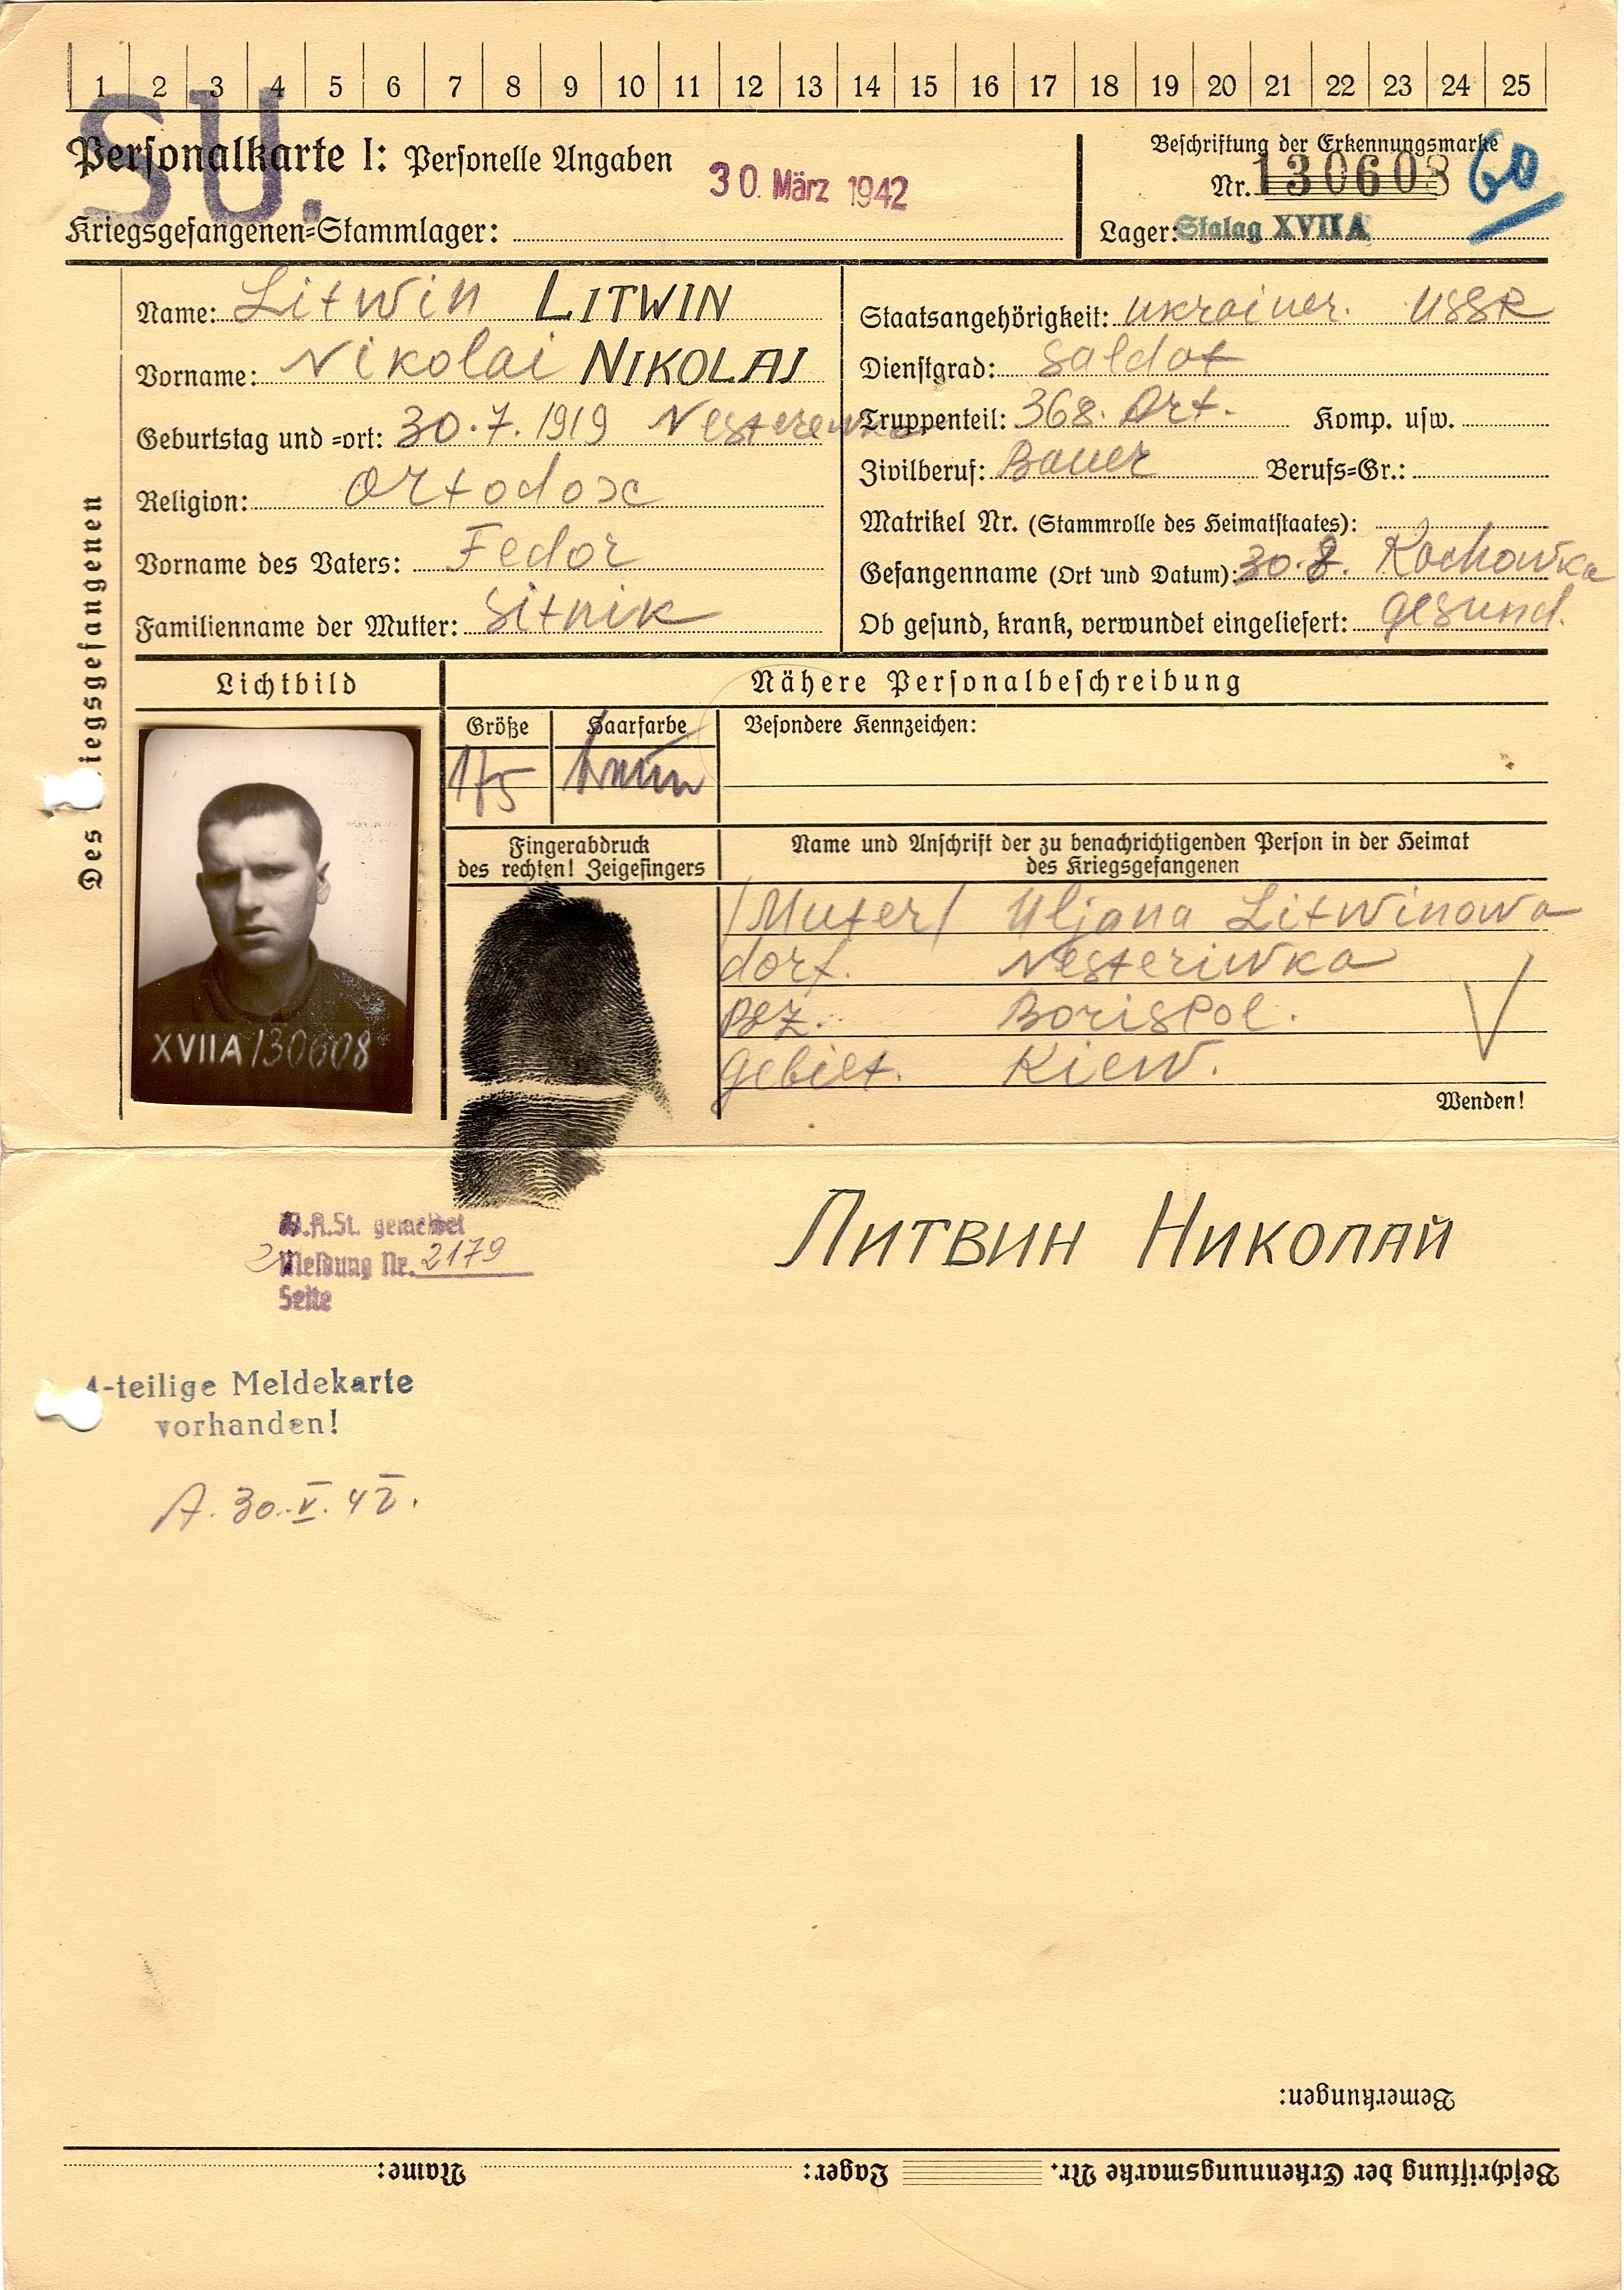 1 2 3 4 5 6 7 8 9 10 11 12 13 14 15 16 17 18 19 20 21 22 23 24 25
SU.
Personalkarte I: Personelle Angaben
30. März 1942
Kriegsgefangenen-Stammlager:
Beschriftung der Erkennungsmarke
Nr. 130608 60
Lager: Stalag XVII A
Des Kriegsgefangenen
Name: Litwin LITWIN
Vorname: Nikolai NIKOLAI
Geburtstag und -ort: 30.7.1919 Nesterewka
Religion: Ortodox
Vorname des Vaters: Fedor
Familienname der Mutter: Sitnik
Staatsangehörigkeit: Ukrainer. USSR
Dienstgrad: Saldat
Truppenteil: 368. Art. Komp. usw.
Zivilberuf: Bauer Berufs-Gr.:
Matrikel Nr. (Stammrolle des Heimatstaates):
Gefangenname (Ort und Datum): 30.8. Kachowka
Ob gesund, krank, verwundet eingeliefert: gesund.
Lichtbild
Nähere Personalbeschreibung
Größe Haarfarbe Besondere Kennzeichen:
175 braun
XVIIA 130608
Fingerabdruck
des rechten! Zeigefingers
Name und Anschrift der zu benachrichtigenden Person in der Heimat
des Kriegsgefangenen
/Muter/ Uljana Litwinowa
dorf. Nesteriwka
Bez. Borispol.
Gebiet. Kiew.
Wenden!
W.A.St. gemeldet
Meldung Nr. 2179
Seite
Литвин Николай
4-teilige Meldekarte
vorhanden!
A. 30.V.42.
Bemerkungen:
Beschriftung der Erkennungsmarke Nr. Lager: Name: